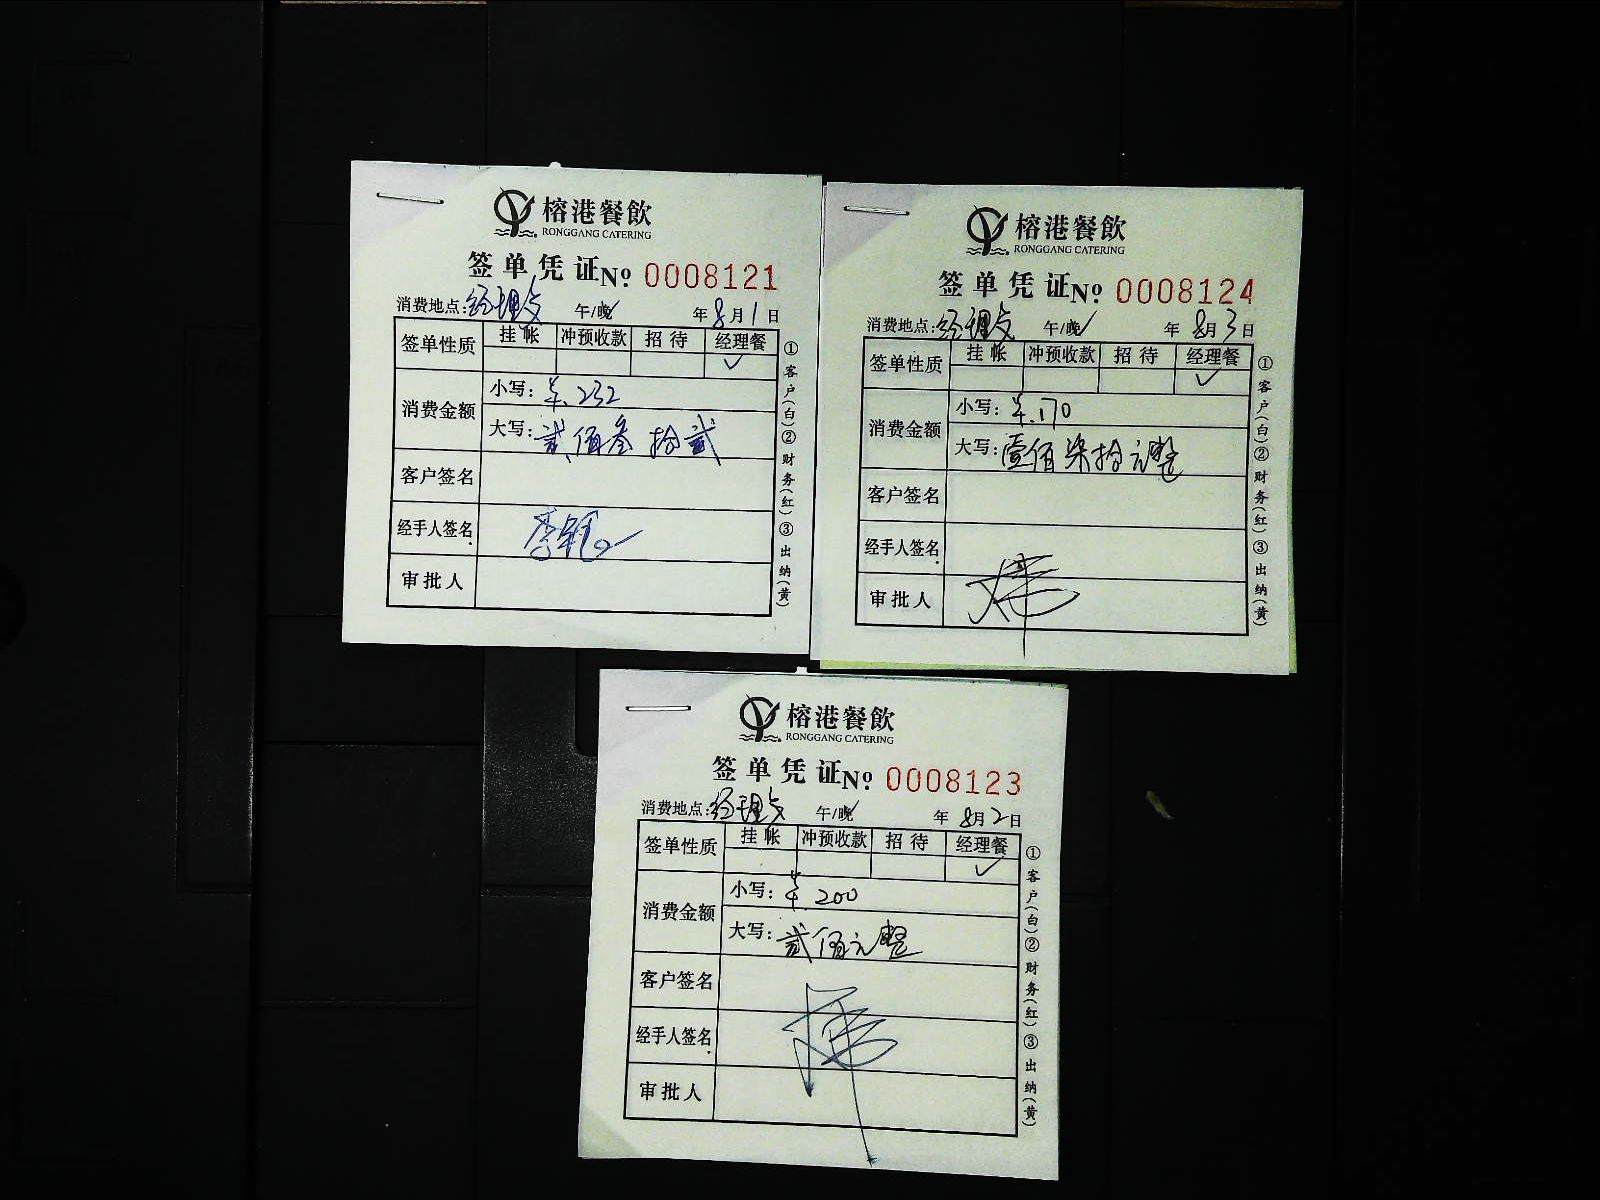 榕港餐飲
RONGGANG CATERING
签单凭证№ 0008121
消费地点:经理 午/晚 年8月1日
签单性质 挂帐 冲预收款 招待 经理餐
✓
消费金额 小写:¥.232
大写:贰佰叁拾贰
客户签名
经手人签名
审批人
①客户(白)②财务(红)③出纳(黄)
榕港餐飲
RONGGANG CATERING
签单凭证№ 0008124
消费地点:经理 午/晚 年8月3日
签单性质 挂帐 冲预收款 招待 经理餐
✓
消费金额 小写:¥.170
大写:壹佰柒拾元整
客户签名
经手人签名
审批人
①客户(白)②财务(红)③出纳(黄)
榕港餐飲
RONGGANG CATERING
签单凭证№ 0008123
消费地点:经理 午/晚 年8月2日
签单性质 挂帐 冲预收款 招待 经理餐
✓
消费金额 小写:¥.200
大写:贰佰元整
客户签名
经手人签名
审批人
①客户(白)②财务(红)③出纳(黄)